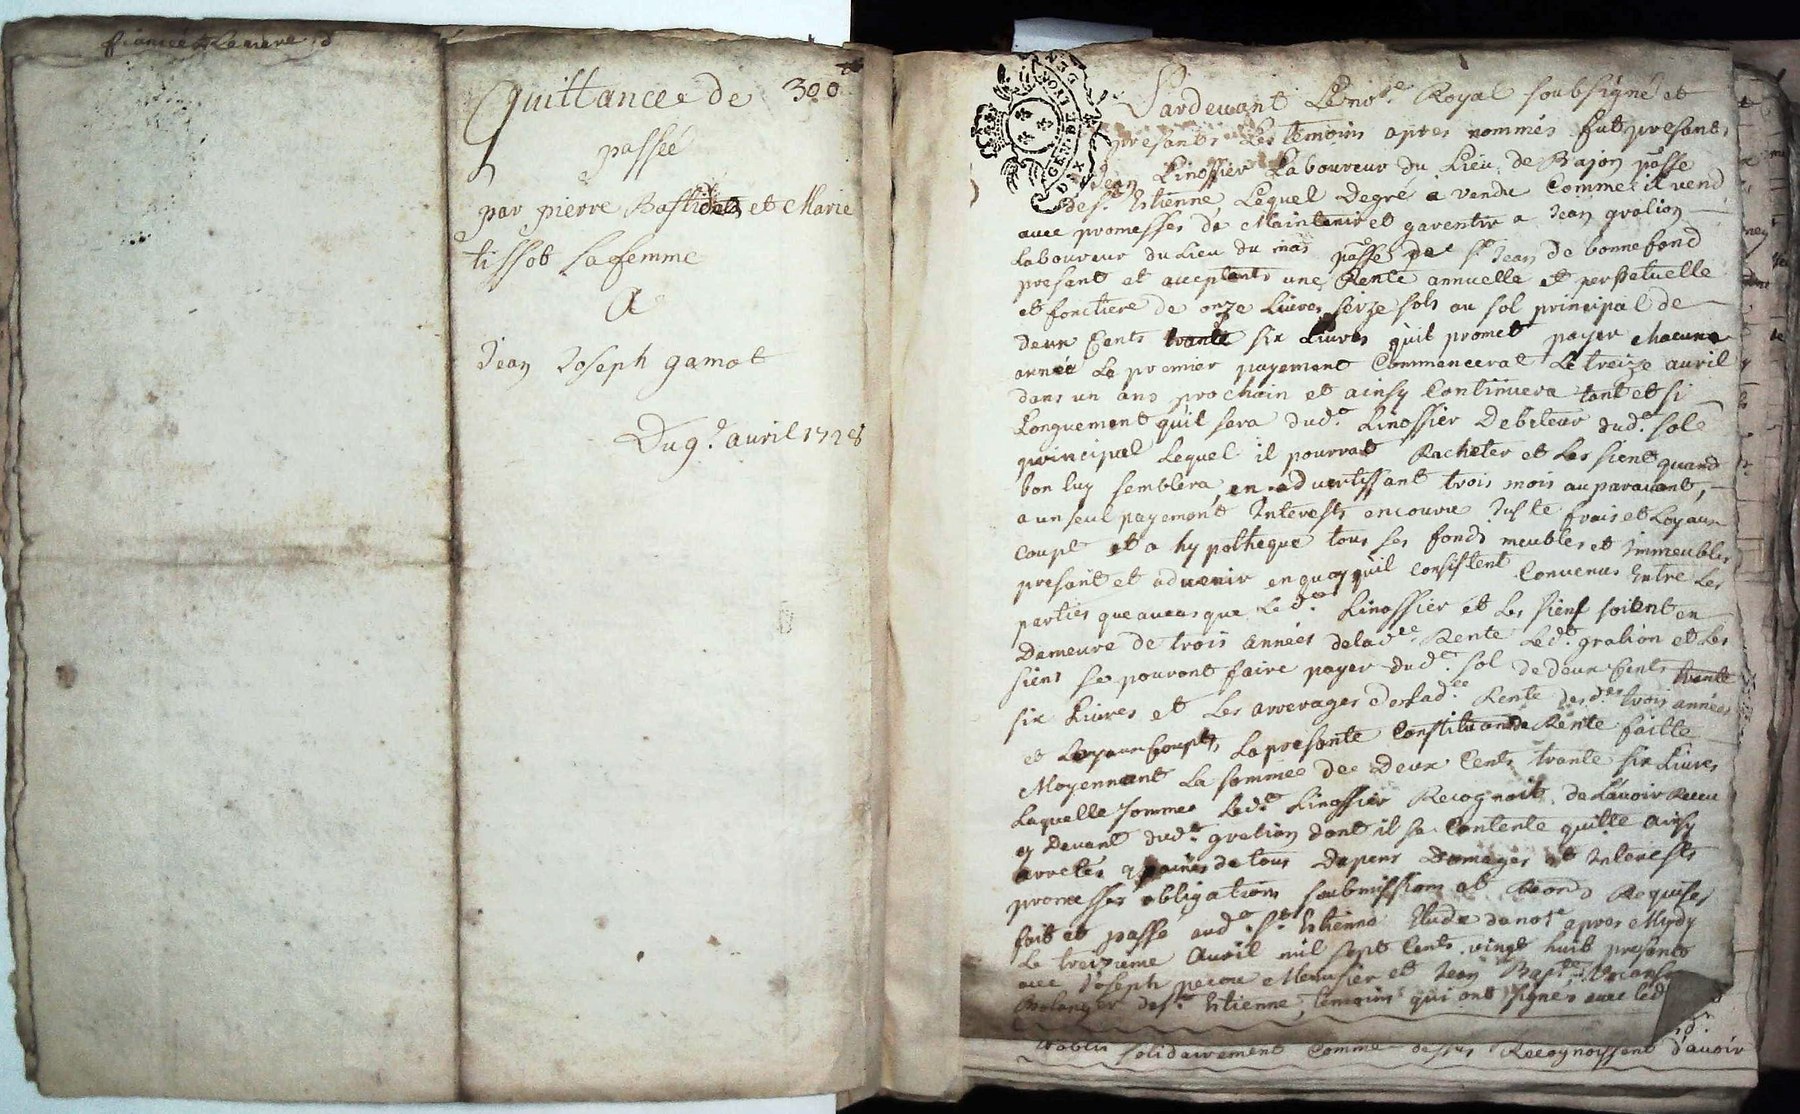 Quittance de 300 ₶
passée
par pierre Bastide et Marie
tissot sa femme
A
Jean Joseph gamot
Du 9.e avril 1728
GEN DE LYON
DEUX
Pardevant Le no.re Royal soubsigné et
presants Les temoins apres nommés fut presant
Jean Linossier Laboureur du Lieu de Bajon p.sse
de s.t Estienne Lequel Degré a vendu Comme il vend
avec promesses de Maintenir et garentir a Jean gration
Laboureur du Lieu du mas p.sse de s.t Jean de bonnefond
presant et acceptant une Rente annuelle et perpetuelle
et fonciere de onze Livres seize sols au sol principal de
deux Cents trante six Livres qu'il promet payer chacune
année Le premier payement Commencerat Le treize avril
dans un ans prochain et ainsy Continuera tant et si
Longuement qu'il sera dud.t Linossier Debiteur dud.t sol
principal Lequel il pourrat Racheter et Les sient quand
bon luy semblera en advertissant trois mois auparavant,
a un seul payement Interests encouru Juste frais et Loyaux
coupt et a hypotheque tous ses fonds meubles et Immeubles
presant et advenir en quoy qu'il consistent Convenus Entre Les
parties que au cas que Le d.t Linossier et Les siens soitent en
Demeure de trois années de lad.te Rente Led.t gration et Les
siens se pouront faire payer dud.t sol de deux Cents trante
six Livres et Les arrerages de lad.te Rente des d.tes trois années
et Loyaux Coupts, La presente Constitution de Rente faitte
Moyennant La somme de Deux Cents trante six Livres
Laquelle somme Led.t Linossier Recognoit de L'avoir Receu
cy Devant dud.t gration dont il se Contente quitte Ainsy
arretés de tous Depens Domages et Interests
promesses obligations soubmissions et Requises
fait et passé aud.t s.t Estienne Etude du no.re apres Mydy
Le treizieme Avril mil sept Cents vingt huit presants
avec Joseph Menusier et Jean Bap.te
Bolanger de s.t Estienne, temoins qui ont signés avec led
solidairement Comme dessus Recognoissent d'avoir